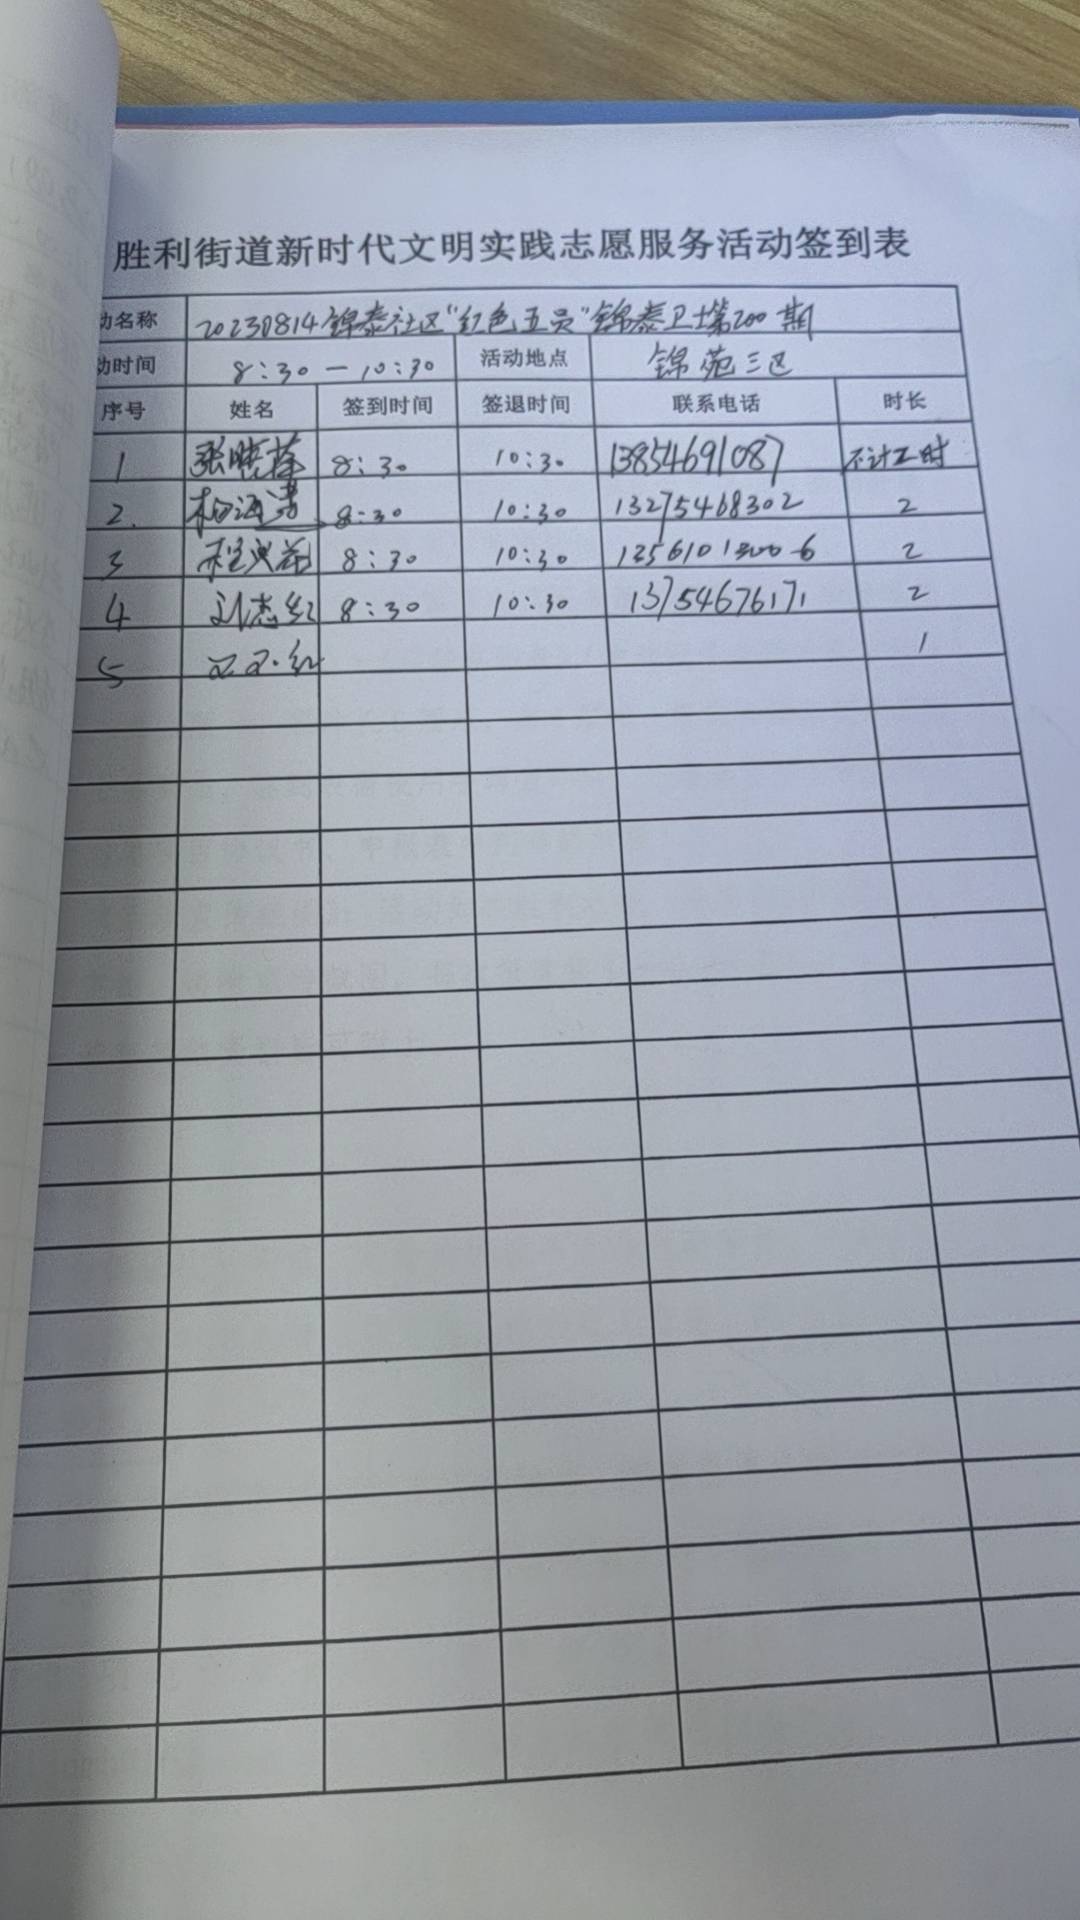 胜利街道新时代文明实践志愿服务活动签到表
动名称 20230814锦泰社区"红色五员"锦泰卫士第200期
动时间 8:30—10:30 活动地点 锦苑三区
序号 姓名 签到时间 签退时间 联系电话 时长
1 张晓 8:30 10:30 13854691087 不计工时
2. 8:30 10:30 13275468302 2
3 8:30 10:30 2
4 刘志红 8:30 10:30 13754676171 2
5 1